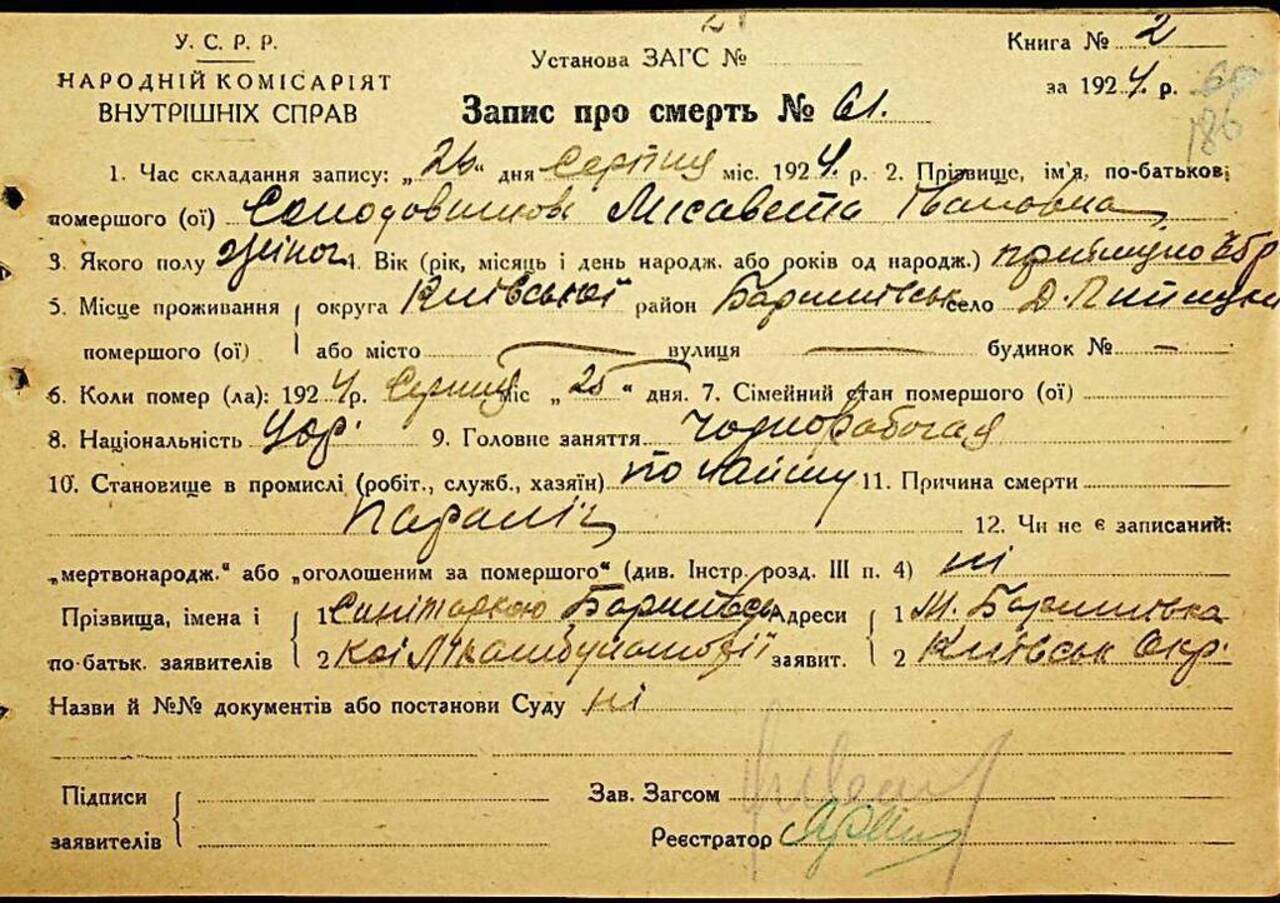 У. С. Р. Р.
НАРОДНІЙ КОМІСАРІЯТ
ВНУТРІШНІХ СПРАВ
Установа ЗАГС №
Книга № 2
за 1924. р.
186
Запис про смерть № 61.
1. Час складання запису: „26“ дня Серпня міс. 1924. р. 2. Прізвище, ім'я, по-батькові
помершого (ої) Солодовникова Лісавета Івановна
3. Якого полу жіноч. 4. Вік (рік, місяць і день народж. або років од народж.)
5. Місце проживання округа Київської район Баришівськ село
помершого (ої) або місто — вулиця — будинок № —
6. Коли помер (ла): 1924р. Серпня міс „25“ дня. 7. Сімейний стан помершого (ої)
8. Національність Укр. 9. Головне заняття чорнорабочая
10. Становище в промислі (робіт., служб., хазяїн) по найму 11. Причина смерти
Параліч 12. Чи не є записаний:
„мертвонародж.“ або „оголошеним за помершого“ (див. Інстр. розд. III п. 4) ні
Прізвища, імена і 1 Санітаркою Баришівсь Адреси 1 М. Баришівка
по-батьк. заявителів 2 кої Лікамбулаторії заявит. 2 Київськ Окр.
Назви й №№ документів або постанови Суду ні
Підписи
заявителів
Зав. Загсом
Реєстратор